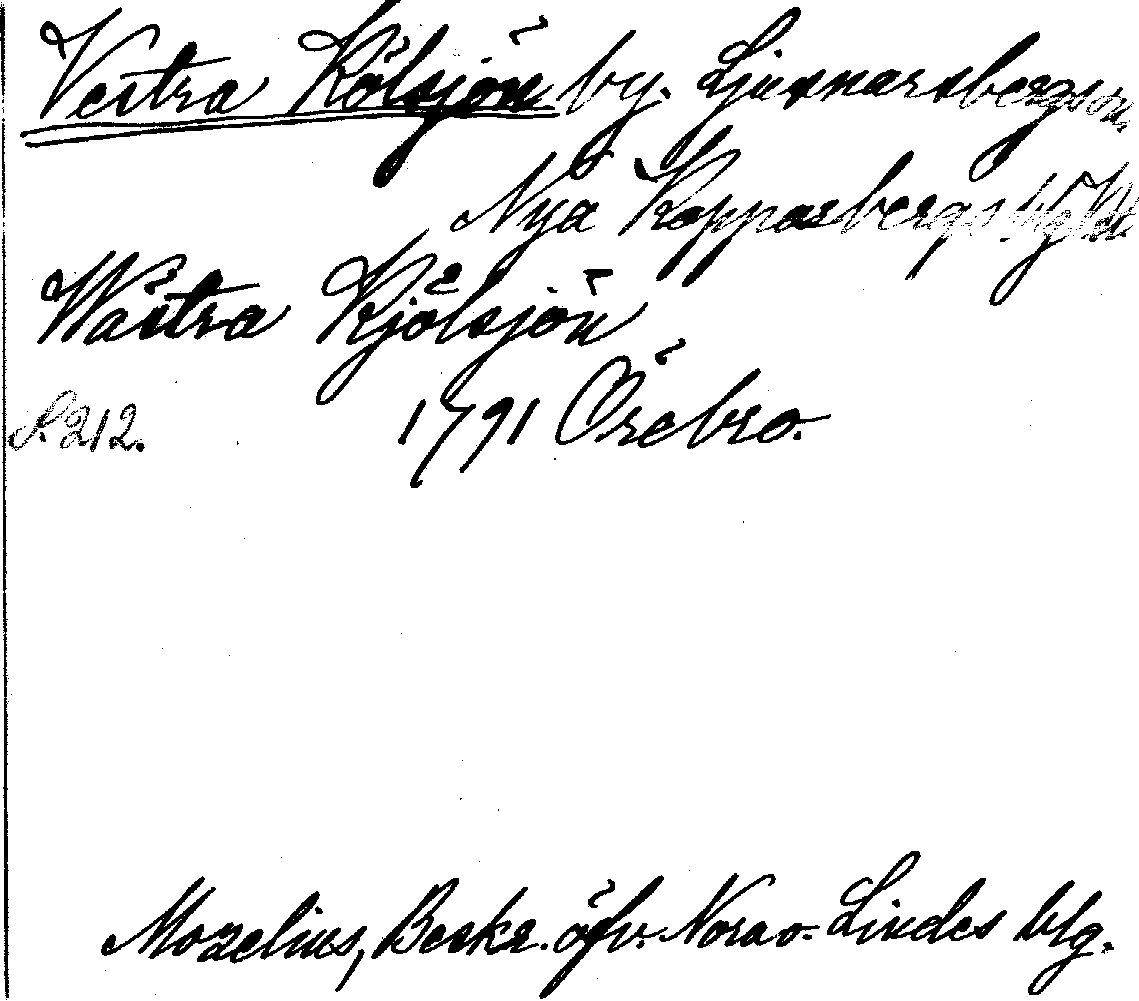 Vestra Kölsjön by. Ljusnarsbergs sn,
Nya Kopparbergs
Wästra Kjölsjön
S. 212. 1791 Örebro.
Mozelius, Beskr. öfv. Nora o. Lindes blg.